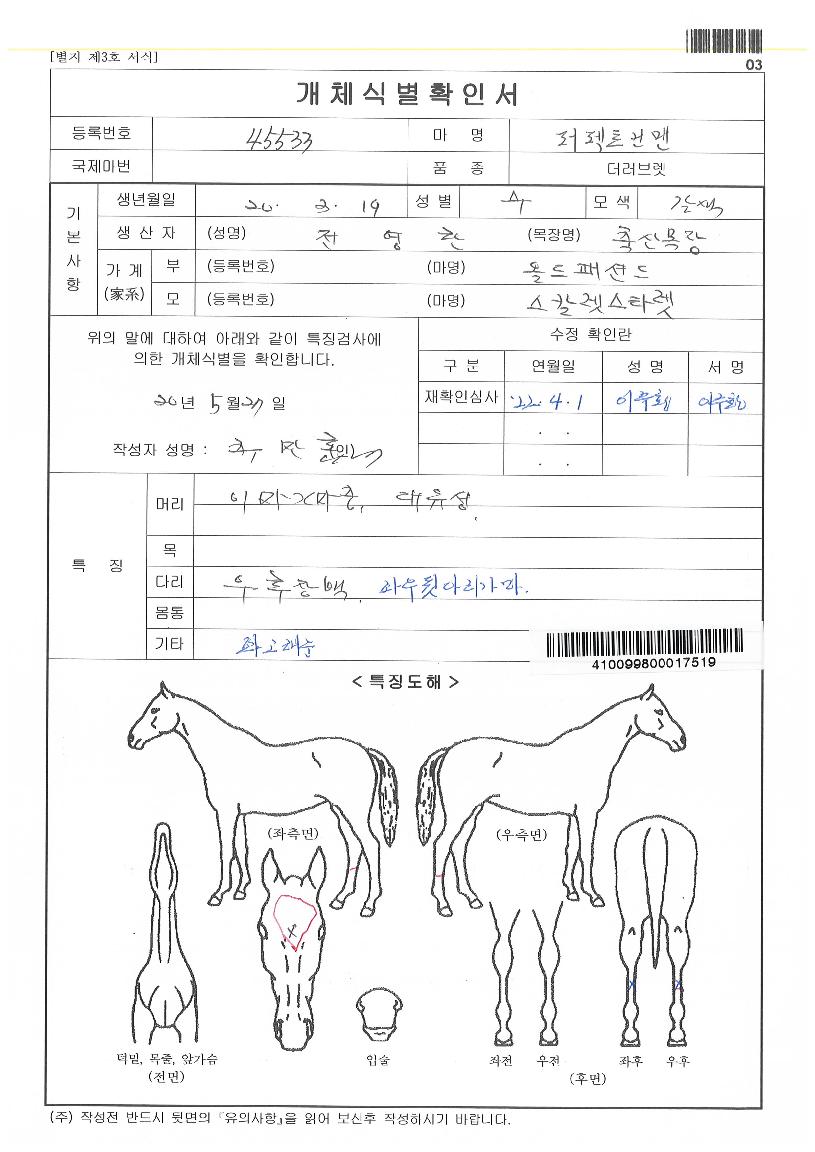 [별지 제3호 서식]
03
개체식별확인서
등록번호 45533 마 명 퍼펙트건맨
국제마번 품 종 더러브렛
기본사항
생년월일 20. 3. 19 성 별 수 모 색 갈색
생 산 자 (성명) 전 영 한 (목장명) 축산목장
가 계 (家系)
부 (등록번호) (마명) 올드패션드
모 (등록번호) (마명) 스칼렛스타렛
위의 말에 대하여 아래와 같이 특징검사에
의한 개체식별을 확인합니다.
20년 5월 27일
작성자 성명 : (인)
수정 확인란
구 분 연월일 성 명 서 명
재확인심사 '22. 4. 1
. .
. .
특 징
머리 대유성
목
다리 우후장백 좌우뒷다리가마.
몸통
기타
410099800017519
< 특징도해 >
(좌측면) (우측면)
덕밑, 목줄, 앞가슴
(전면)
입술
좌전 우전
좌후 우후
(후면)
(주) 작성전 반드시 뒷면의 『유의사항』을 읽어 보신후 작성하시기 바랍니다.